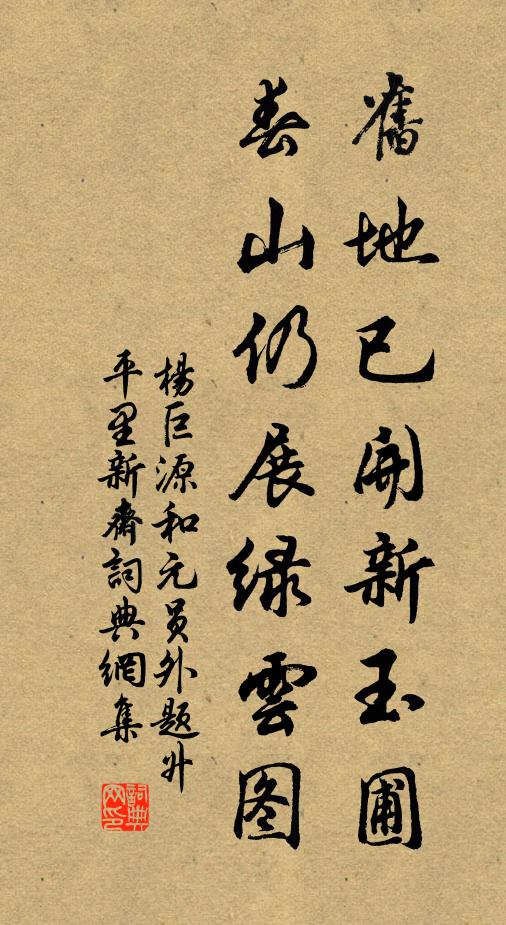 舊地已開新玉圃
春山仍展绿雲图
楊巨源和元員外題升
平里新齋詞典網集
詞典網印